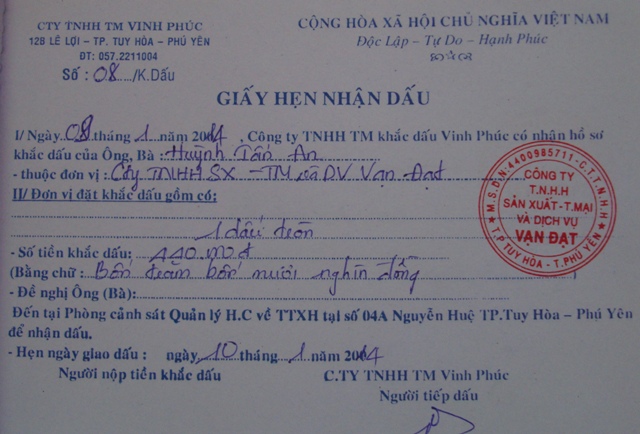 CTY TNHH TM VINH PHÚC
12B LÊ LỢI – TP. TUY HÒA – PHÚ YÊN
ĐT: 057.2211004
Số : 08/K.Dấu
CỘNG HÒA XÃ HỘI CHỦ NGHĨA VIỆT NAM
Độc Lập – Tự Do – Hạnh Phúc
GIẤY HẸN NHẬN DẤU
I/ Ngày 08 tháng 1 năm 2014, Công ty TNHH TM khắc dấu Vinh Phúc có nhận hồ sơ
khắc dấu của Ông, Bà : Huỳnh Tấn An
- thuộc đơn vị : Cty TNHH SX – TM và DV Vạn Đạt
II/ Đơn vị đặt khắc dấu gồm có:
1 dấu tròn
- Số tiền khắc dấu: 440.000đ
(Bằng chữ : Bốn trăm bốn mươi nghìn đồng
- Đề nghị Ông (Bà):
Đến tại Phòng cảnh sát Quản lý H.C về TTXH tại số 04A Nguyễn Huệ TP.Tuy Hòa – Phú Yên
để nhận dấu.
- Hẹn ngày giao dấu : ngày 10 tháng 1 năm 2014
Người nộp tiền khắc dấu
C.TY TNHH TM Vinh Phúc
Người tiếp dấu
M.S.D.N: 4400985711 - C.T.T.N.H.H
CÔNG TY
T.N.H.H
SẢN XUẤT-T.MẠI
VÀ DỊCH VỤ
VẠN ĐẠT
T.P TUY HÒA - T. PHÚ YÊN